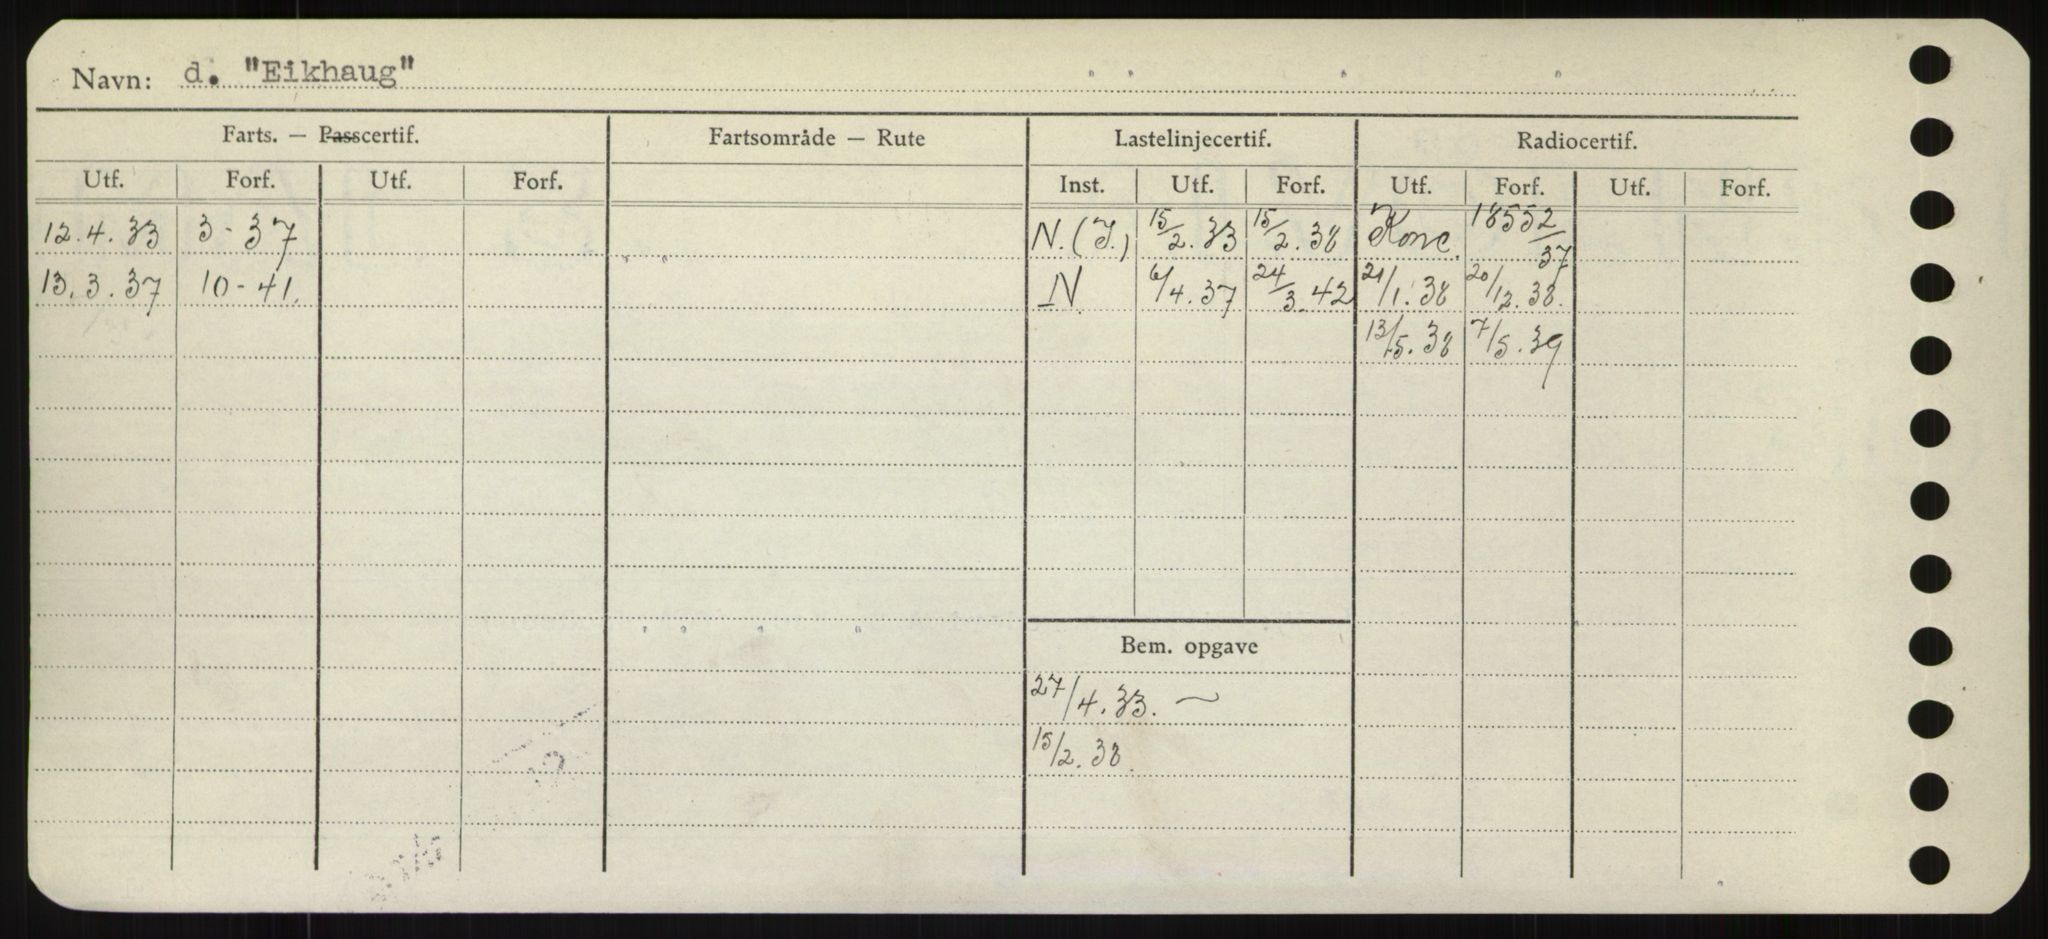 Navn: d. "Eikhaug"
Farts. — Passcertif. Fartsområde — Rute Lastelinjecertif. Radiocertif.
Utf. Forf. Utf. Forf. Inst. Utf. Forf. Utf. Forf. Utf. Forf.
12.4.33 3-37 N.(I.) 15/2.33 15/2.38 Konc. 18552/37
13.3.37 10-41. N. 6/4.37 24/3.42 21/1.38 20/12.38.
13/5.38 7/5.39
Bem. opgave
27/4.33. ~
15/2.38.